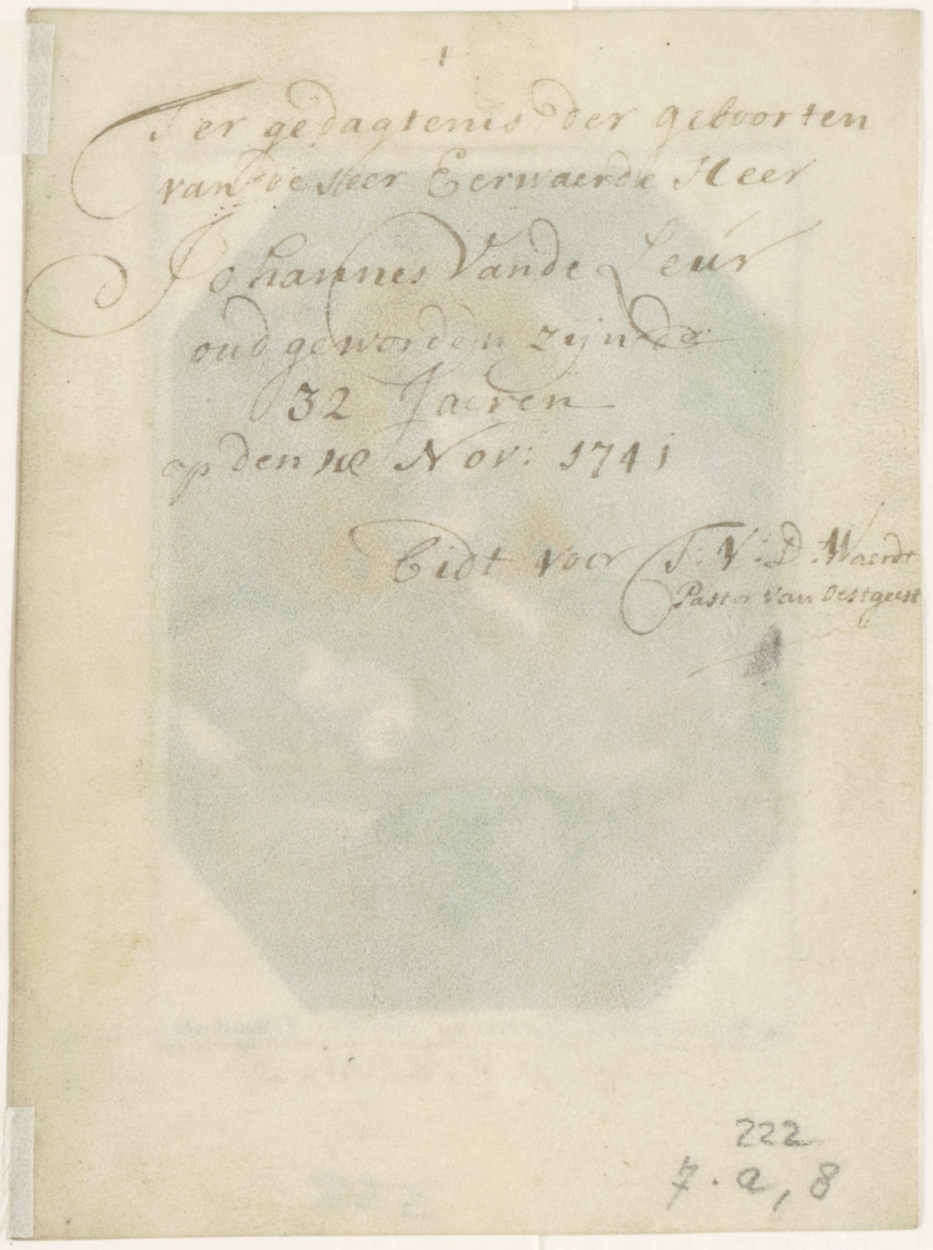 Ter gedagtenis der geboorten
van de Heer Eerwaerde Heer
Johannes Vande Leur
oud geworden zijnde
32 Jaeren
op den Nov: 1741
Bidt voor J: V: D: Waerdt
Pastor van Oestgeest
222
7. a, 8